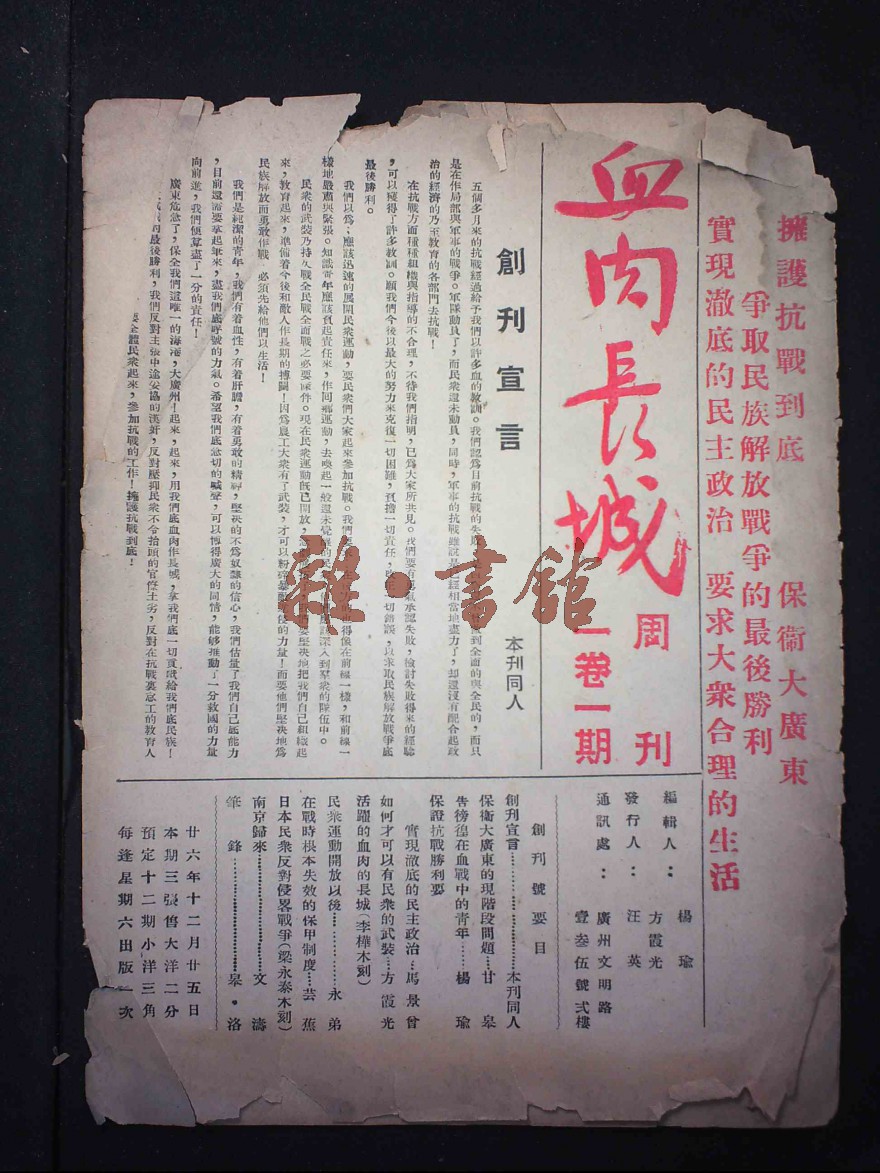 擁護抗戰到底　保衞大廣東
爭取民族解放戰爭的最後勝利
實現澈底的民主政治　要求大衆合理的生活
血肉長城
周刊
一卷一期
編輯人：楊瑜
方霞光
發行人：汪英
通訊處：廣州文明路
壹叁伍號弍樓
創刊宣言
本刊同人
五個多月來的抗戰經過給予我們以許多血的敎訓。我們認爲目前抗戰的失敗
是在作局部與軍事的戰爭。軍隊動員了，而民衆還未動員，同時，軍事的抗戰雖說是已經相當地盡力了，却還沒有配合起政
治的經濟的乃至敎育的各部門去抗戰！
在抗戰方面種種組織與指導的不合理，不待我們指明，已爲大家所共見。我們要有勇氣承認失敗，檢討失敗得來的經驗
，可以獲得了許多敎訓。願我們今後以最大的努力來克復一切困難，負擔一切責任，
切錯誤，以求取民族解放戰爭底
最後勝利。
我們以爲：應該迅速的展開民衆運動，要民衆們大家起來參加抗戰。我們要
得像在前線一樣，和前線一
樣地嚴肅與緊張。知識青年應該負起責任來，作同鄉運動，去喚起一般還未覺醒的民
應該深入到羣衆的隊伍中。
民衆的武裝乃持久戰全民戰全面戰之必要條件。現在民衆運動旣已開放，
們要堅决地把我們自己組織起
來，敎育起來，準備着今後和敵人作長期的搏鬬！因爲農工大衆有了武裝，才可以粉碎暴
侵的力量！而要他們堅决地爲
民族解放而勇敢作戰　必須先給他們以生活！
我們是純潔的靑年，我們有着血性，有着肝膽，有着勇敢的精神，堅决的不爲奴隸的信心，我們估量了我們自己底能力
，目前還需要拿起筆來，盡我們底呼號的力氣。希望我們底急切的喊聲，可以博得廣大的同情，能够推動了一分救國的力量
向前進，我們便算盡了一分的責任！
廣東危急了，保全我們這唯一的海港，大廣州！起來，起來，用我們底血肉作長城，拿我們底一切貢獻給我們底民族！
的最後勝利，我們反對主張中途妥協的漢奸，反對壓抑民衆不令抬頭的官僚土劣，反對在抗戰裏怠工的敎育人
全體民衆起來，參加抗戰的工作！擁護抗戰到底！
創刊號要目
創刊宣言……本刊同人
保衞大廣東的現階段問題…甘皋
告徬徨在血戰中的靑年…楊瑜
保證抗戰勝利要
實現澈底的民主政治…馬景曾
如何才可以有民衆的武裝…方霞光
活躍的血肉的長城（李樺木刻）
民衆運動開放以後……永弟
在戰時根本失效的保甲制度…芸蕉
日本民衆反對侵畧戰爭（梁永泰木刻）
南京歸來……文濤
筆鋒……皋·洛
廿六年十二月廿五日
本期三張售大洋二分
預定十二期小洋三角
每逢星期六出版一次
雜·書館